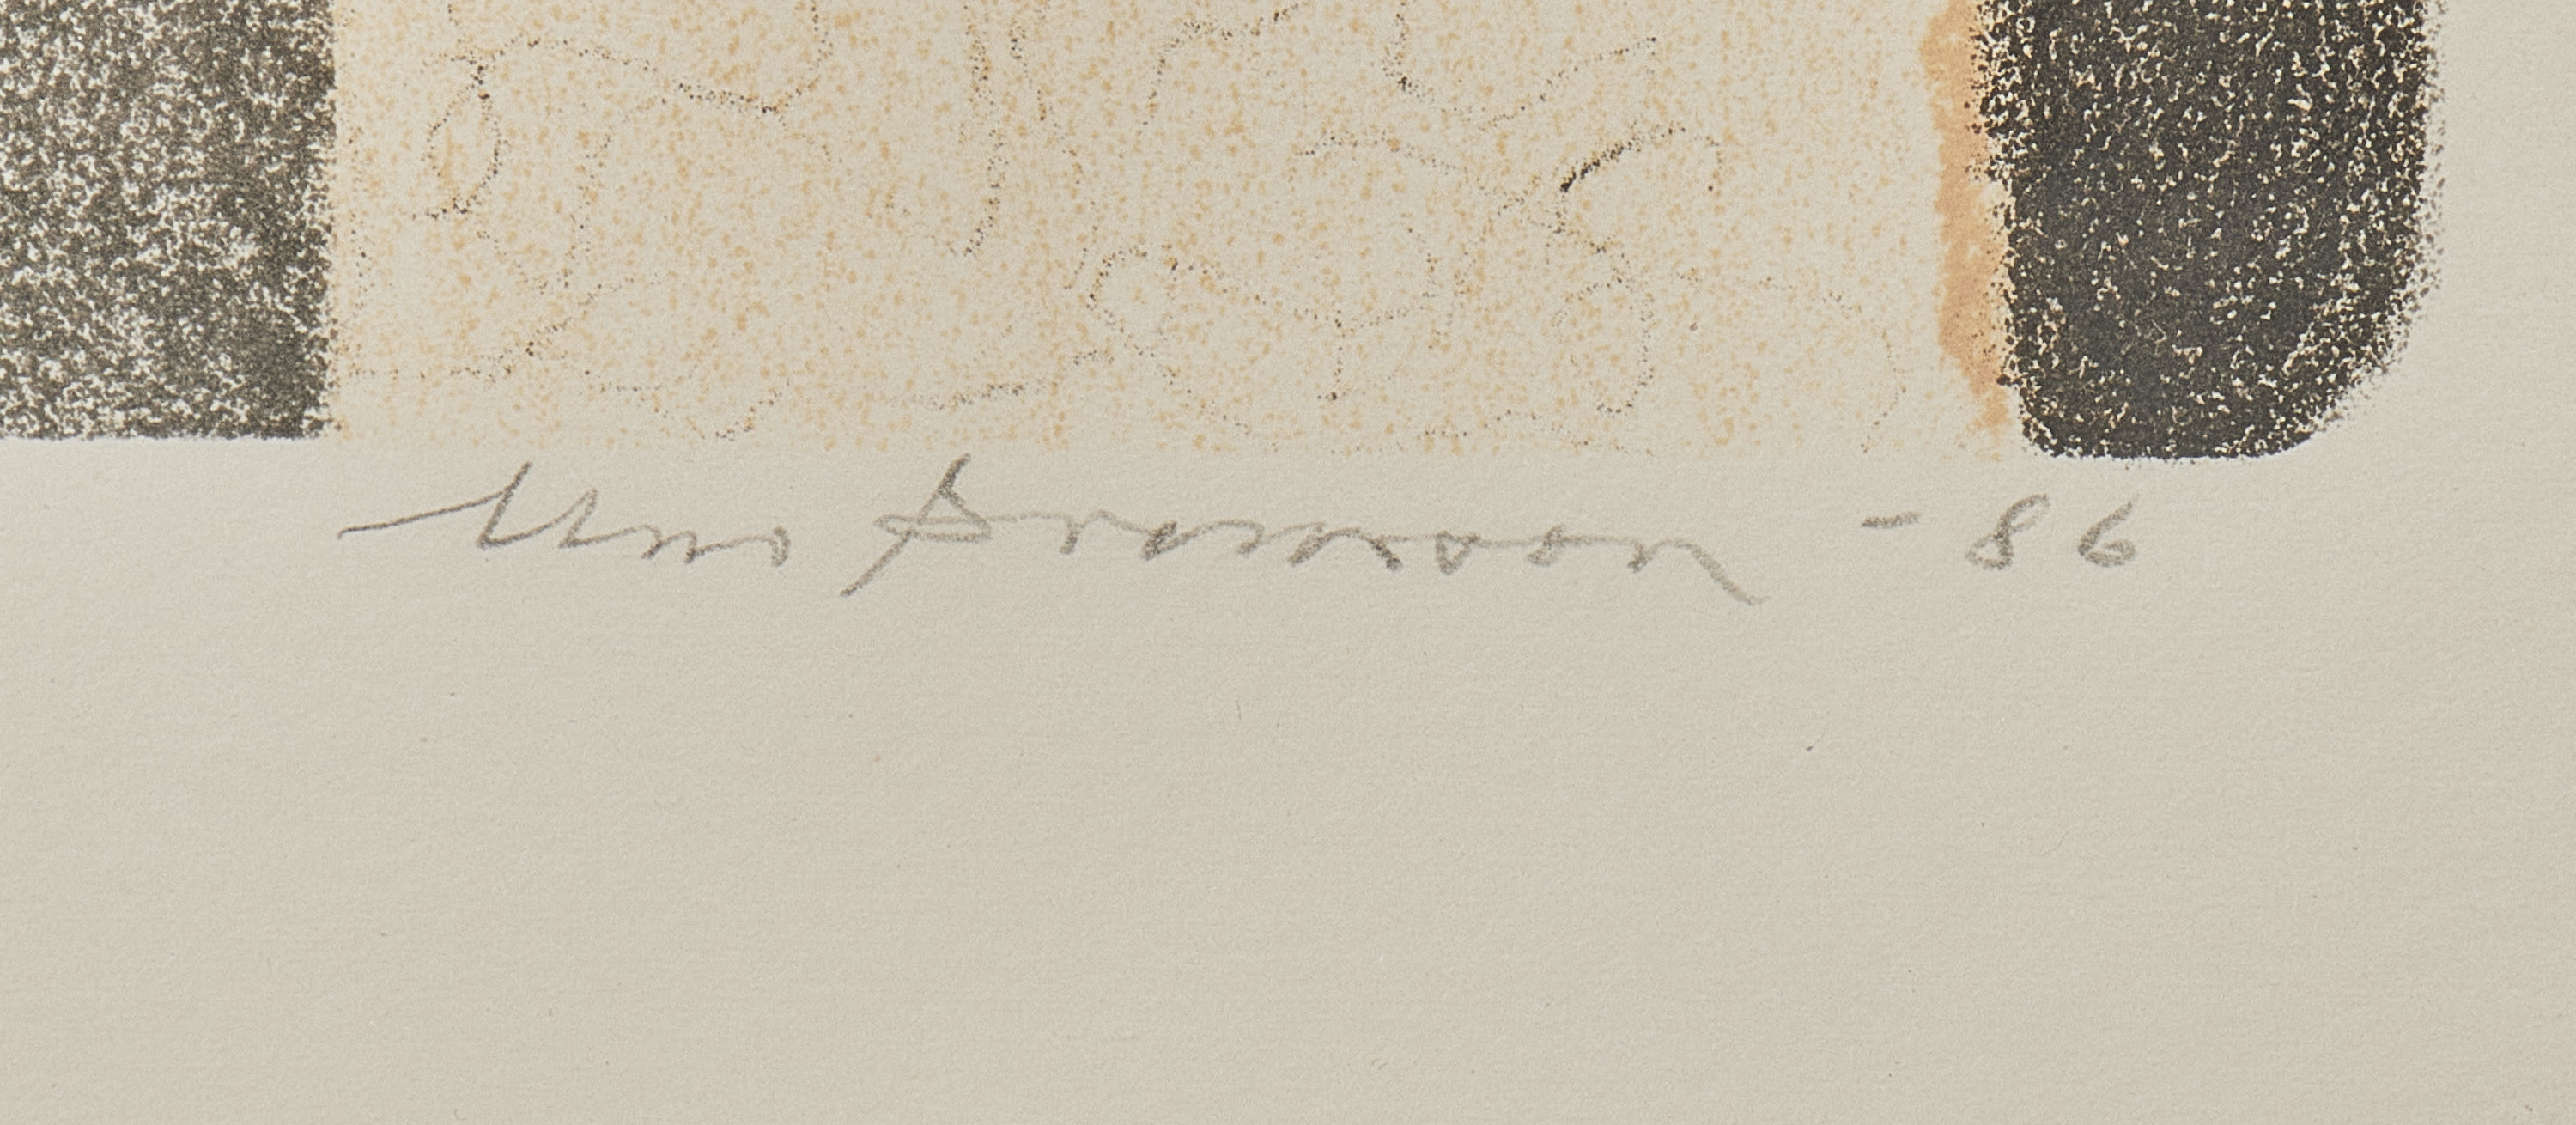 Uno Svensson -86